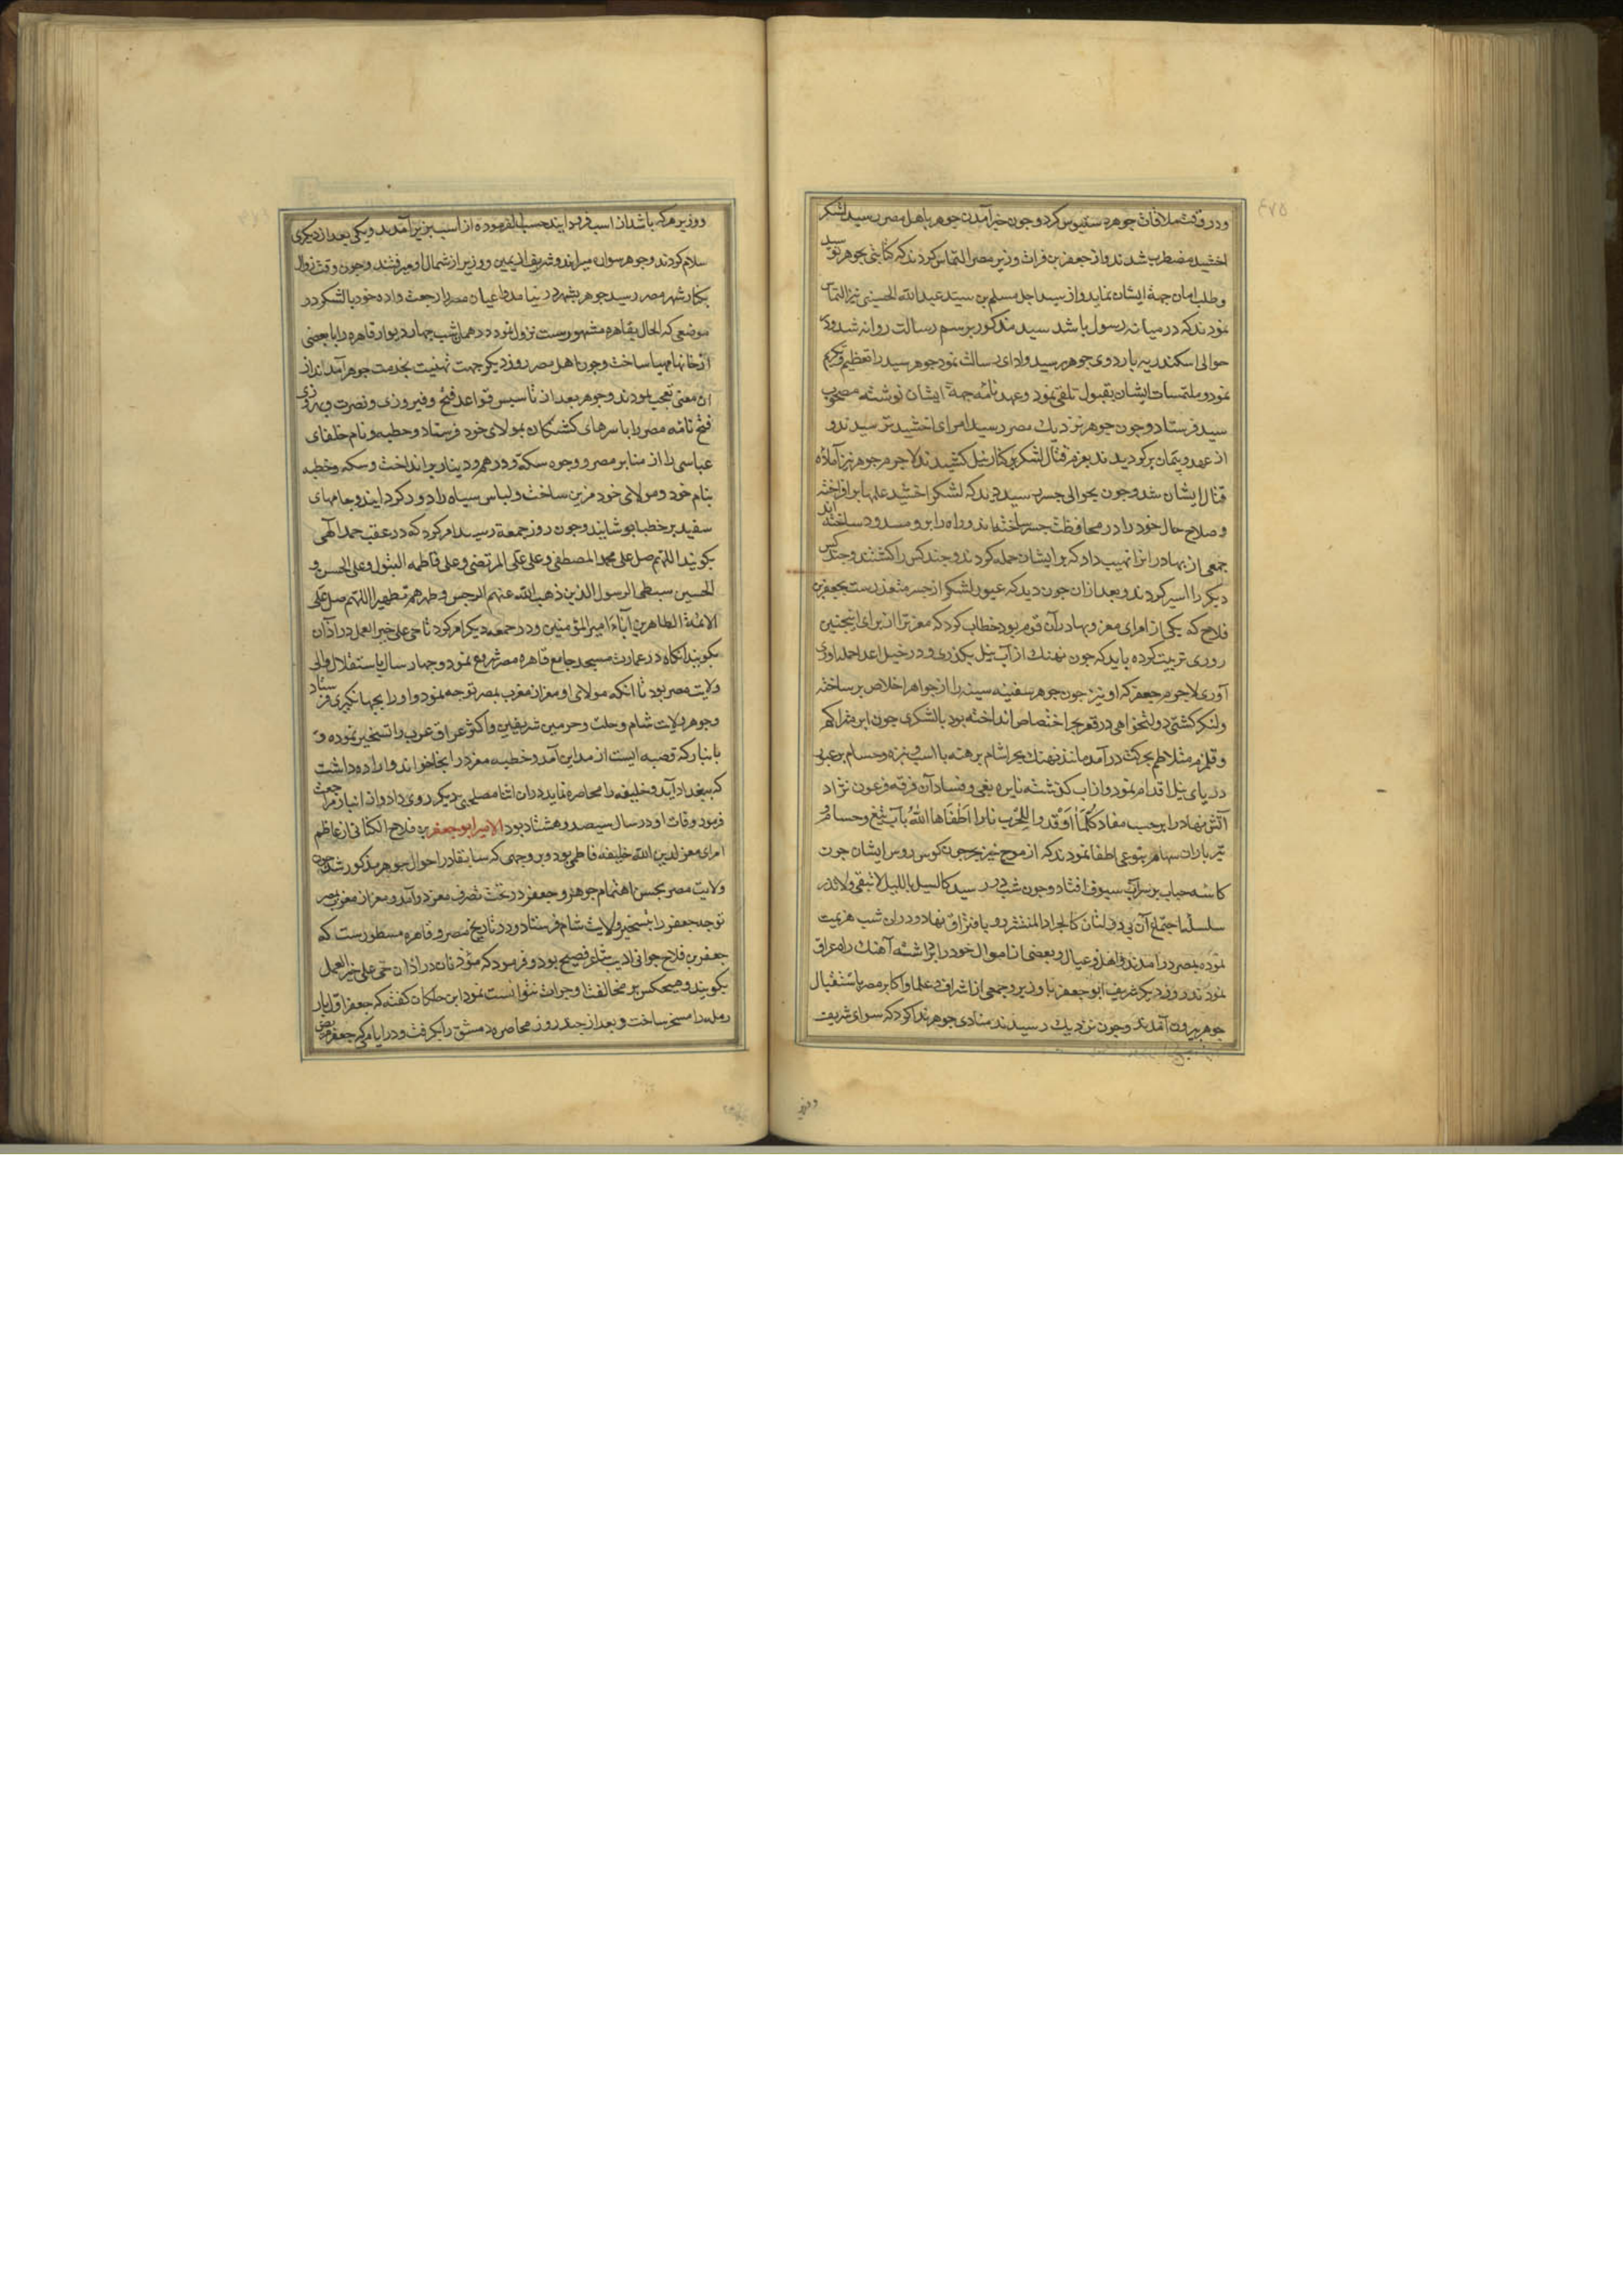 ٤٧٥
و در وقت ملاقات جوهر دستبوس کرد و چون خبر آمدن جوهر باهل مصر رسید لشکر
اخشید مضطرب شدند و از جعفر بن فرات وزیر مصر التماس کردند که کتابتی بجوهر نویسد
و طلب امان جهة ایشان نماید و از سید اجل مسلم بن سید عبد الله الحسینی نیز التماس
نمودند که در میانه رسول باشد سید مذکور برسم رسالت روانه شد و در
حوالی اسکندریه باردوی جوهر رسید و ادای رسالت نمود جوهر سید را تعظیم و تکریم
نمود و ملتمسات ایشان بقبول تلقی نمود و عهدنامه جهة ایشان نوشته مصحوب
سید فرستاد و چون جوهر نزدیك مصر رسید امرای اخشید ترسیدند و
از عهد و پیمان برکردیدند بعزم قتال لشکر بر کنار نیل کشیدند لاجرم جوهر نیز آماده
قتال ایشان شد و چون بحوالی جسر رسید دید که لشکر اخشید علمها بر افراخته
و صلاح حال خود را در محافظت جسر ساخته‌اند و راه را برو مسدود ساخته اند
جمعی از بهادرانرا نهیب داد که بر ایشان حمله کردند و چند کس را کشتند و چند کس
دیکر را اسیر کردند و بعد از ان چون دید که عبور لشکر از جسر متعذرست بجعفر بن
فلاح که یکی از امرای معز و بهادر آن قوم بود خطاب کرد که معز ترا از برای اینچنین
روزی تربیت کرده باید که چون نهنك از آب نیل بکذری و در خیل اعدا حمله آوری
آوری لاجرم جعفر که او نیز چون جوهر سفینه سینه را از جواهر اخلاص بر ساخته
و لنکر کشتی دولتخواهی در قعر بحر اختصاص انداخته بود با لشکری چون ابر متراکم
و قلزم متلاطم بحرکت در آمده مانند نهنك بحر آشام برهنه با اسب و نیزه و حسام بر عبور
دریای نیل اقدام نمود و از آب کذشته نایره بغی و فساد آن فرقه فرعون نژاد
آتش نهاد را برحسب مفاد کلما اوقدوا للحرب نارا اطفاها الله بآب تیغ و حسام و
تیر باران سهام بنوعی اطفا نمودند که از موج خیز بحر چون کوس روس ایشان چون
کاسه حباب بر سر آب سیوف افتاد و چون شب در رسید کالسیل باللیل لا تبقی ولا تذر
سلسله اجتماع آن بی دولتان کالجراد المنتشر رو بافتراق نهاد و در ان شب هزیمت
نموده بمصر در آمدند و اهل و عیال و بعضی از اموال خود را برداشته آهنك راه عراق
نمودند روز دیکر شریف ابو جعفر با وزیر و جمعی از اشراف و علما و اکابر مصر باستقبال
جوهر بیرون آمدند و چون نزدیك رسیدند منادی جوهر ندا کرد که سوای شریف
و وزیر
و وزیر هر که باشد از اسب فرود آیند حسب الفرموده از اسب بزیر آمدند و یکی بعد از دیکری
سلام کردند و جوهر سواره میراند و شریف از یمین و وزیر از شمال او میرفتند و چون وقت زوال
بکنار شهر مصر رسید جوهر بشهر در نیامد و اعیان مصر را رجعت داده خود با لشکر در
موضعی که الحال بقاهره مشهورست نزول نمود و در همان شب چهار دیوار قاهره را با بعضی
از خانها مهیا ساخت و چون اهل مصر روز دیکر جهت تهنیت بخدمت جوهر آمدند از
ان معنی تعجب نمودند و جوهر بعد از تاسیس قواعد فتح و فیروزی و نصرت و بهروزی
فتح نامه مصر را با سرهای کشتکان بمولای خود فرستاد و خطبه و نام خلفای
عباسی را از منابر مصر و وجوه سکه و درهم و دینار بر انداخت و سکه و خطبه
بنام خود و مولای خود مزین ساخت و لباس سیاه را دور کردانید و جامهای
سفید بر خطبا پوشانید و چون روز جمعه رسید امر کرد که در عقب حمد الهی
بکویند اللهم صل علی محمد المصطفی و علی علی المرتضی و علی فاطمه البتول و علی الحسن و
الحسین سبطی الرسول الذین ذهب الله عنهم الرجس و طهرهم تطهیرا اللهم صل علی
الائمة الطاهرین آباء امیر المؤمنین و در جمعه دیکر امر کرد تا حی علی خیر العمل در آذان
بکویند انکاه در عمارت مسجد جامع قاهره مصر شروع نمود و چهار سال باستقلال والی
ولایت مصر بود تا انکه مولای او معز از مغرب بمصر توجه نمود و او را بجهانکیری فرستاد
و جوهر ولایت شام و حلب و حرمین شریفین و اکثر عراق عرب را تسخیر نموده و
بانبار که قصبه ایست از مداین آمد و خطبه معز در انجا خواند و اراده داشت
که ببغداد آید و خلیفه را محاصره نماید در ان اثنا مصلحتی دیکر روی داد و از انبار مراجعت
فرمود وفات او در سال سیصد و هشتاد بود الامیر ابو جعفر بن فلاح الکتانی از اعاظم
امرای معز لدین الله خلیفه فاطمی بود و بر وجهی که سابقا در احوال جوهر مذکور شد چون
ولایت مصر بحسن اهتمام جوهر و جعفر در تحت تصرف معز در آمد و معز از مغرب بمصر
توجه جعفر را بتسخیر ولایت شام فرستاد و در تاریخ مصر و قاهره مسطورست که
جعفر بن فلاح جوانی ادیب شاعر فصیح بود و فرمود که مؤذنان در اذان حی علی خیر العمل
بکویند و هیچکس بر مخالفت او جرات نتوانست نمود ابن خلکان کفته که جعفر اول بار
رمله را مسخر ساخت و بعد از چند روز محاصره دمشق را بکرفت و در ایامی که جعفر مریض